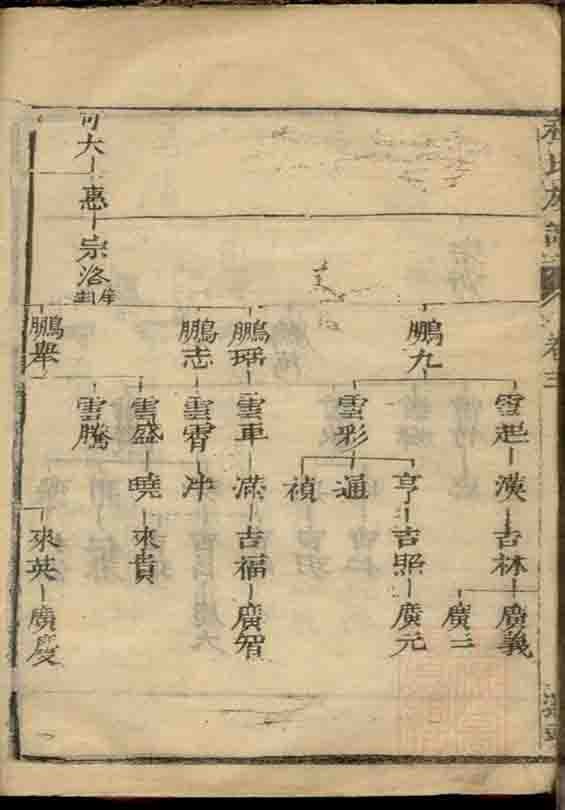 氏族譜
卷三
鵬九
雲起
漢
吉林
廣義
廣三
雲彩
亨
吉照
廣元
通
禎
鵬
雲車
滿
吉福
廣智
鵬志
雲霄
冲
大
惠
宗洛
鵬舉
雲盛
曉
來貴
雲騰
來英
廣慶